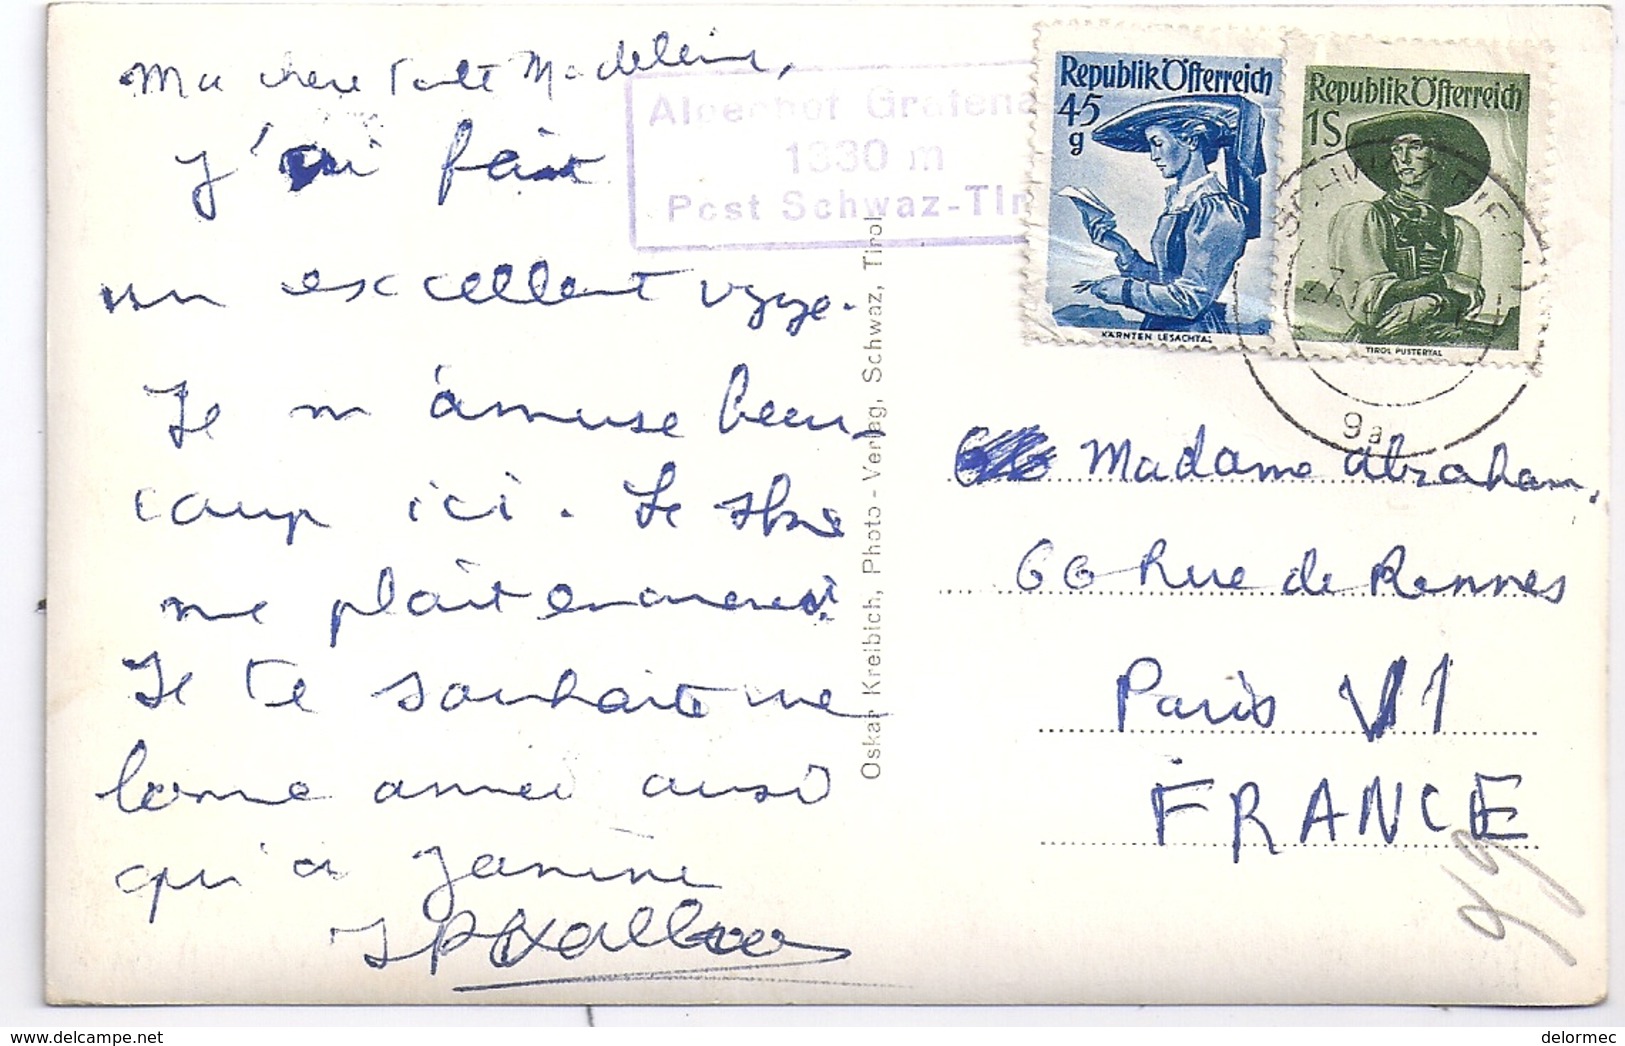 Ma chere tante Madeleine,
j'ai fait
un excellent voyage.
Je m'amuse beau-
coup ici. Le
me plait enormement.
Je te souhaite une
bonne année aussi
qu'a Janine
Alpenhof Grafena
1330 m
Post Schwaz-Tir
Oskar Kreibich, Photo-Verlag, Schwaz, Tirol
Republik Österreich
45
g
KÄRNTEN LESACHTAL
Republik Österreich
1S
TIROL PUSTERTAL
SCHWAZ
9a
Madame Abraham.
66 Rue de Rennes
Paris VI
FRANCE
59
delcampe.net
delormec